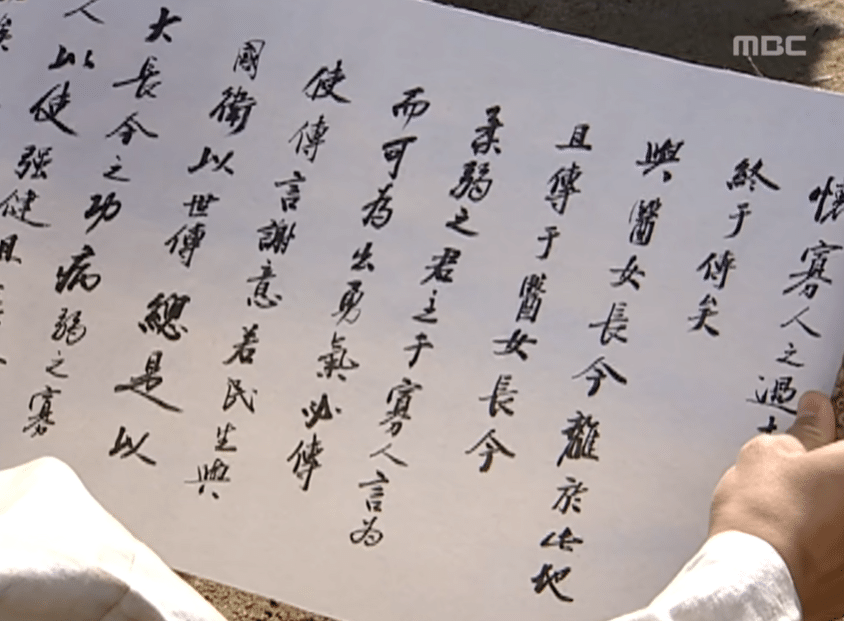 寡人之過
終于傳矣
與醫女長今離於此地
且傳于醫女長今
柔弱之君主于寡人言為
而可為出勇氣必傳
使傳言謝意若民生與
國衛以世傳總是以
大長今之功病弱之寡
人以使强健且
MBC